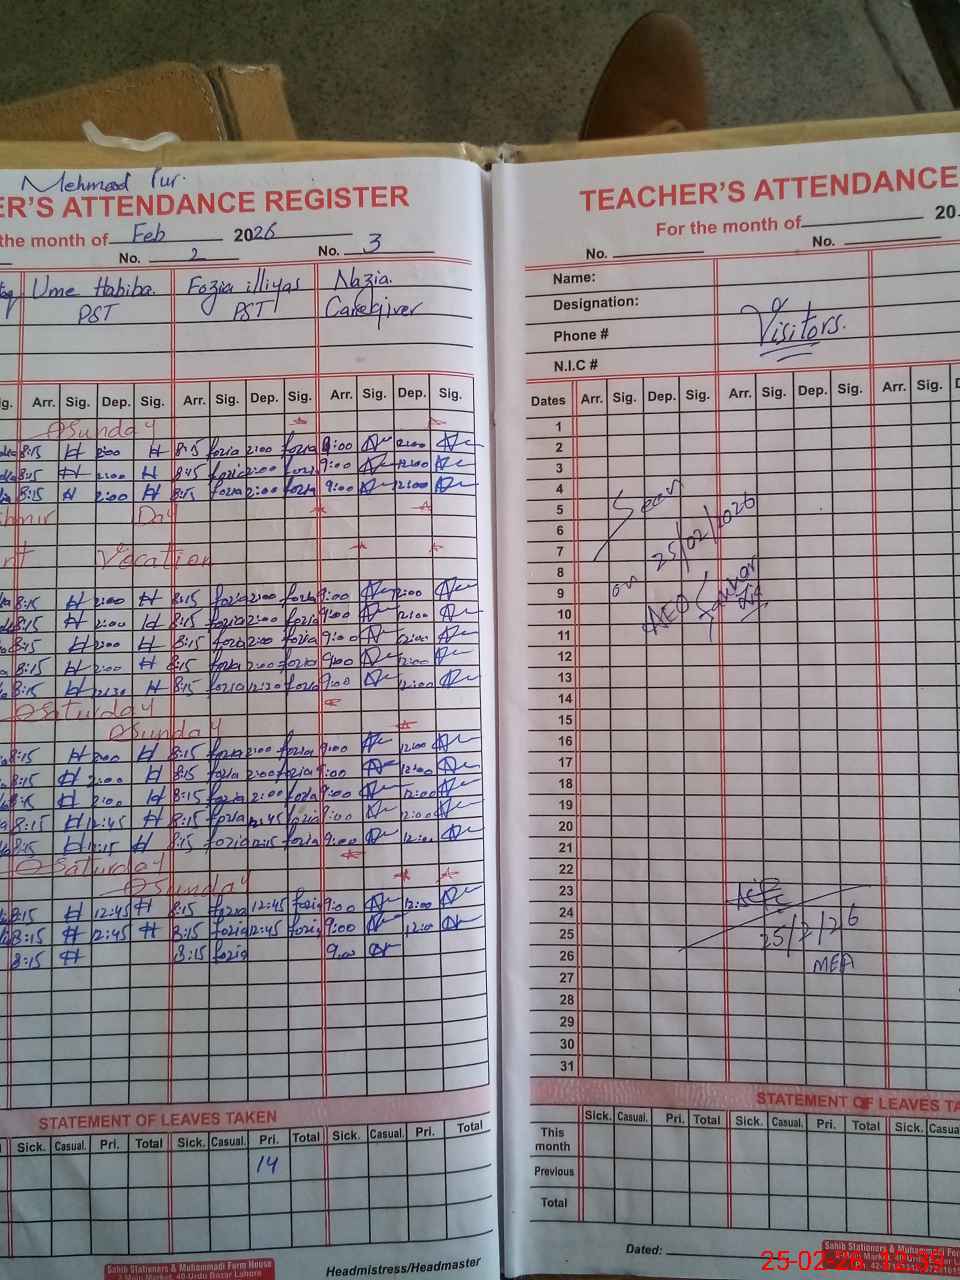 Mehmood Pur.
ER'S ATTENDANCE REGISTER
the month of Feb 2026
No. 2 No. 3
Ume Habiba. Fozia illiyas Nazia.
PST PST Caregiver
ig. Arr. Sig. Dep. Sig. Arr. Sig. Dep. Sig. Arr. Sig. Dep. Sig.
Sunday
8:15 H 2:00 H 8:15 fozia 2:00 fozia 9:00 12:00
8:15 H 2:00 H 8:15 fozia 2:00 fozia 9:00 12:00
8:15 H 2:00 H 8:15 fozia 2:00 fozia 9:00 12:00
Day
Vacation
8:15 H 2:00 H 8:15 fozia 2:00 fozia 9:00 12:00
8:15 H 2:00 H 8:15 fozia 2:00 fozia 9:00 12:00
8:15 H 2:00 H 8:15 fozia 2:00 fozia 9:00 12:00
8:15 H 2:00 H 8:15 fozia 2:00 fozia 9:00 12:00
8:15 H 12:30 H 8:15 fozia 12:30 fozia 9:00 12:00
Saturday
Sunday
8:15 H 2:00 H 8:15 fozia 2:00 fozia 9:00 12:00
8:15 H 2:00 H 8:15 fozia 2:00 fozia 9:00 12:00
8:15 H 2:00 H 8:15 fozia 2:00 fozia 9:00 12:00
8:15 H 12:45 H 8:15 fozia 12:45 fozia 9:00 12:00
8:15 H 12:15 H 8:15 fozia 12:15 fozia 9:00 12:00
Saturday
Sunday
8:15 H 12:45 H 8:15 fozia 12:45 fozia 9:00 12:00
8:15 H 12:45 H 8:15 fozia 12:45 fozia 9:00 12:00
8:15 H 8:15 fozia 9:00
STATEMENT OF LEAVES TAKEN
Sick. Casual. Pri. Total Sick. Casual. Pri. Total Sick. Casual. Pri. Total
14
Sahib Stationers & Muhammadi Form House
Main Market, 40-Urdu Bazar Lahore
Headmistress/Headmaster
TEACHER'S ATTENDANCE
For the month of 20
No. No.
Name:
Designation:
Visitors.
Phone #
N.I.C #
Dates Arr. Sig. Dep. Sig. Arr. Sig. Dep. Sig. Arr. Sig. D
1
2
3
4
5
Seen
6
7
on 25/02/2026
8
9
10
AEO
11
12
13
14
15
16
17
18
19
20
21
22
23
24
25
25/2/26
26
MEA
27
28
29
30
31
STATEMENT OF LEAVES TA
Sick. Casual. Pri. Total Sick. Casual. Pri. Total Sick. Casua
This month
Previous
Total
Dated:
Sahib Stationers & Muhammadi For
25-02-26